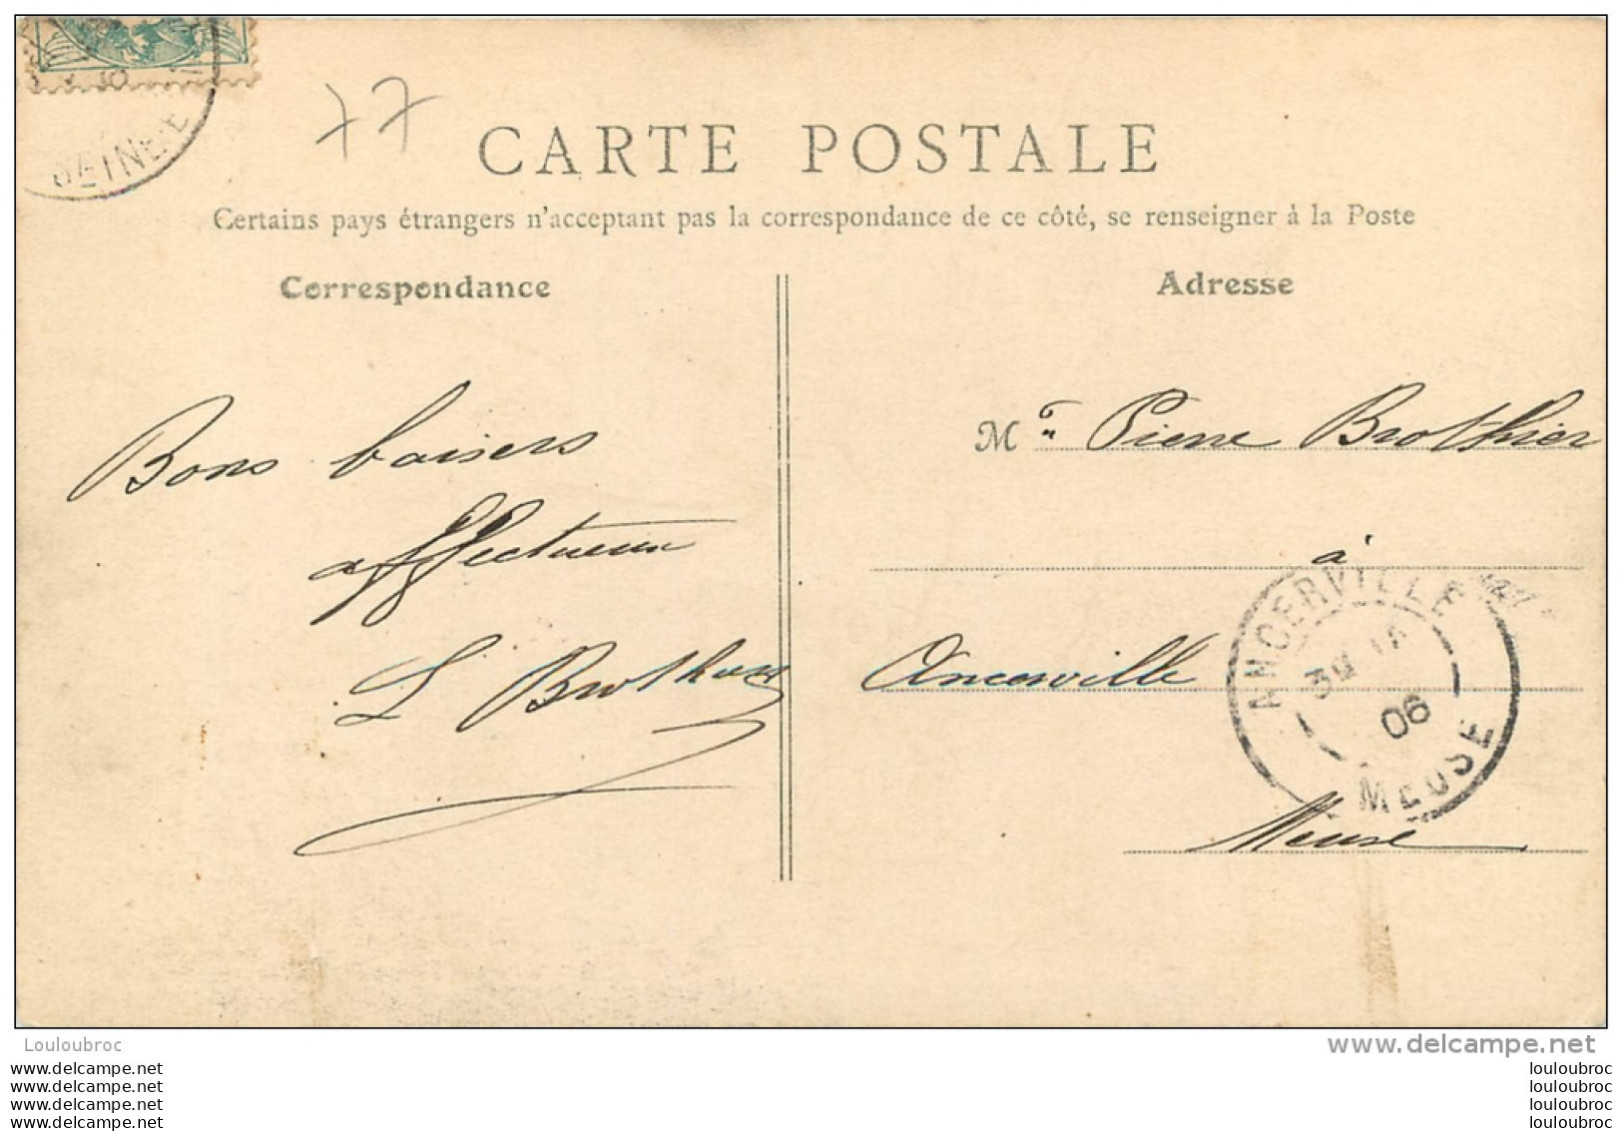 SEINE-E
77
CARTE POSTALE
Certains pays étrangers n'acceptant pas la correspondance de ce côté, se renseigner à la Poste
Correspondance
Adresse
Bons baisers
affectueux
L Brothier
M Pierre Brothier
à
Ancerville
Meuse
ANCERVILLE
06
MEUSE
Louloubroc
www.delcampe.net
www.delcampe.net
www.delcampe.net
www.delcampe.net
www.delcampe.net
louloubroc
louloubroc
louloubroc
louloubroc